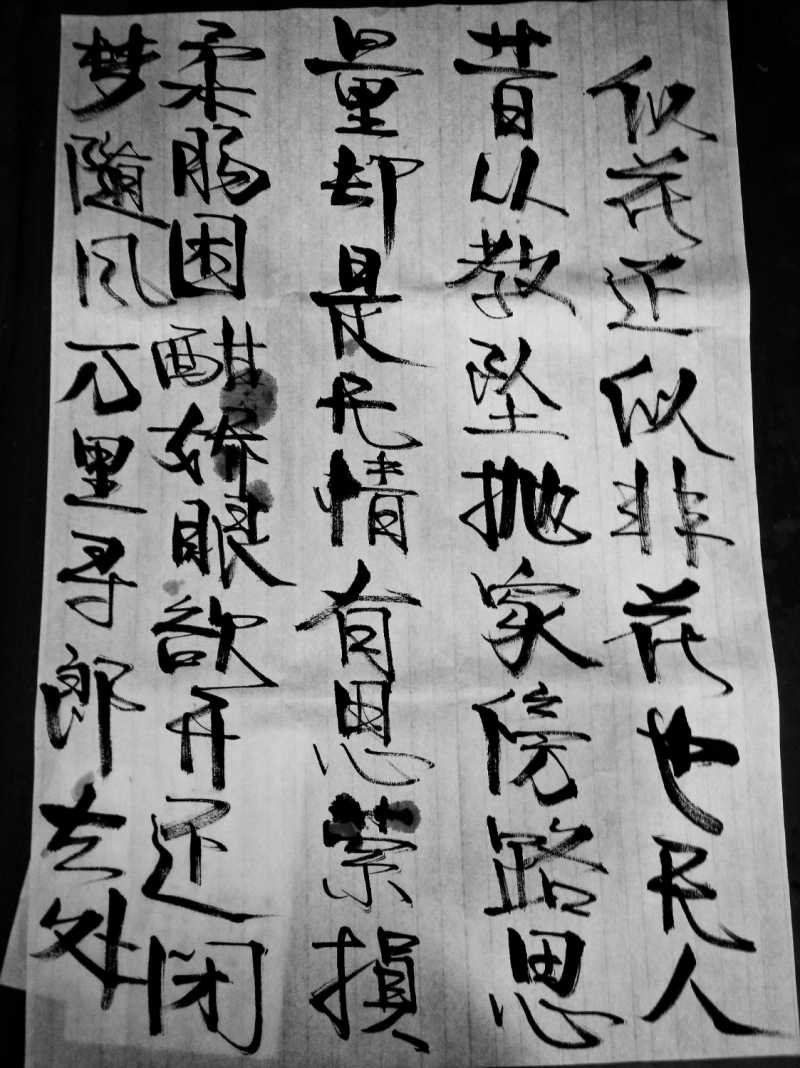 似花还似非花也无人
昔以教坠抛家傍路思
量却是无情有思萦損
柔肠困酣娇眼欲开还闭
梦随风万里寻郎去处